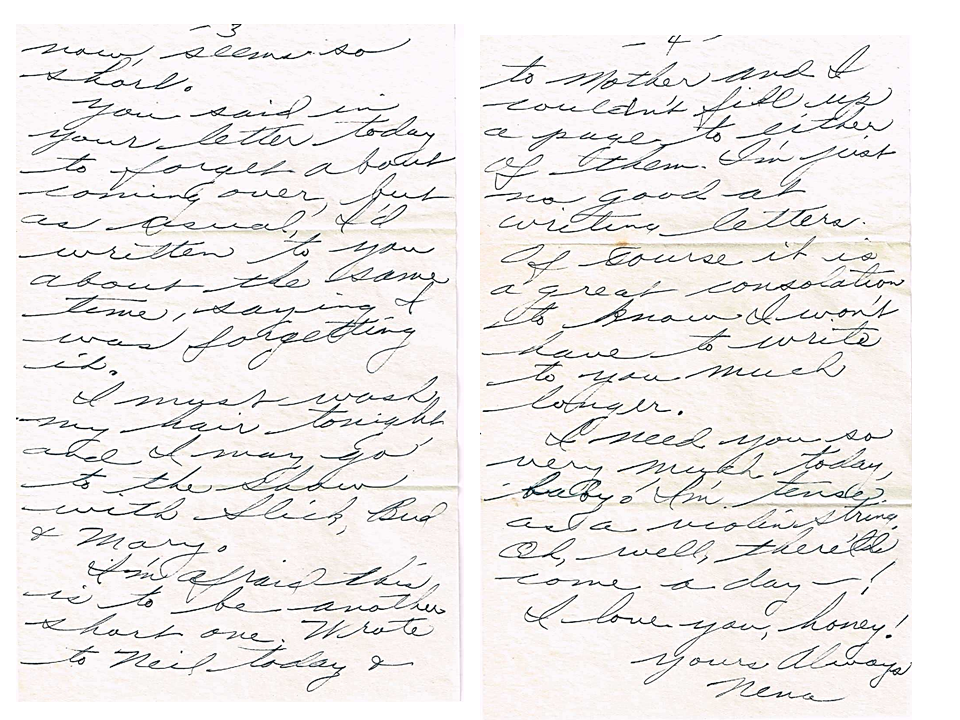 - 3
now, seems so
short.
You said in
your letter today
to forget about
coming over, but
as usual, I'd
written to you
about the same
time, saying I
was forgetting
it.
I must wash
my hair tonight
and I may go
to the show
with Slick, Bud
& Mary.
I'm afraid this
is to be another
short one. Wrote
to Neil today &
- 4 -
to Mother and I
couldn't fill up
a page to either
of them. I'm just
no good at
writing letters.
Of course it is
a great consolation
to know I won't
have to write
to you much
longer.
I need you so
very much today,
baby! I'm tense
as a violin string.
Oh, well, there'll
come a day — !
I love you, honey!
Yours Always
Nena